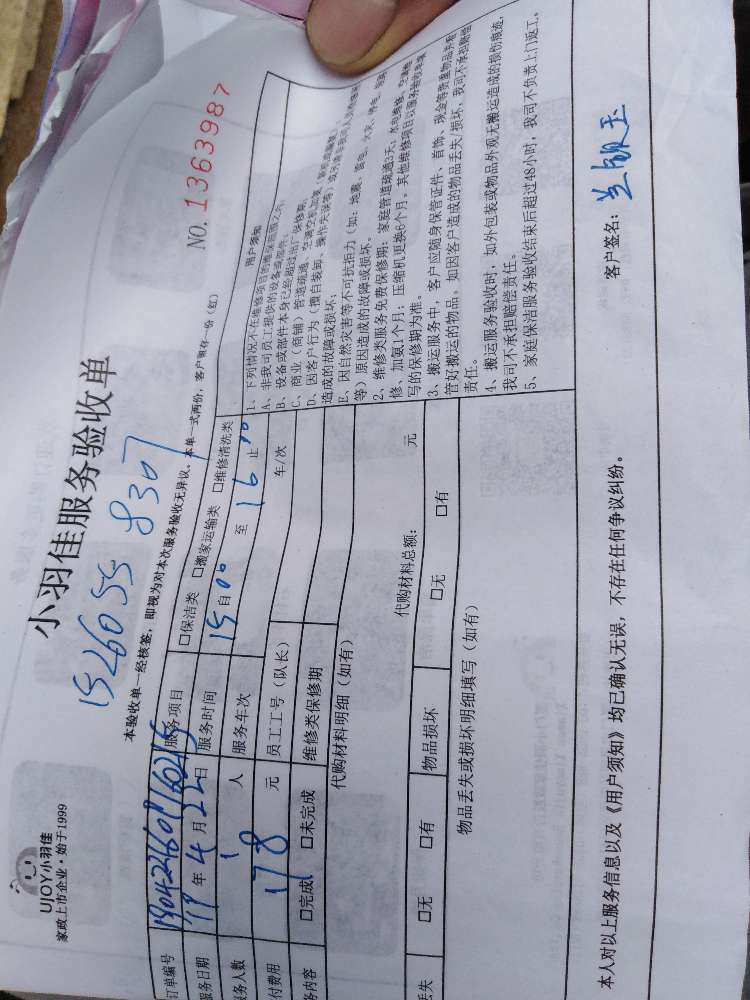 UJOY小羽佳
家政上市企业·始于1999
小羽佳服务验收单
NO. 1363987
15260558307
本验收单一经核签，即视为对本次服务验收无异议。本单一式两份，客户留存一份（红）
订单编号
服务项目 □保洁类 □搬家运输类 □维修清洗类
服务日期 19年4月22日 服务时间 15自00 至 16止00
服务人数 1人 服务车次 车/次
付费用 178元 员工工号（队长）
务内容 □完成 □未完成 维修类保修期
代购材料明细（如有）
代购材料总额： 元
丢失 □无 □有 物品损坏 □无 □有
物品丢失或损坏明细填写（如有）
用户须知
1、下列情况不在维修项目的维保范围之内：
A、非我司员工提供的设备或部件；
B、设备或部件本身已经超过出厂保修期。
C、商业（商铺）管道疏通、空调空机加氟
D、因客户行为（擅自装卸、操作失误等）
造成的故障或损坏；
E、因自然灾害等不可抗拒力（如：地震、
等）原因造成的故障或损坏。
2、维修类服务免费保修期：家庭管道疏通3天，水电维修、空调维
修、加氨1个月；压缩机更换6个月，其他维修项目以服务验收单填
写的保修期为准。
3、搬运服务中，客户应随身保管证件、首饰、现金等贵重物品并保
管好搬运的物品，如因客户造成的物品丢失/损坏，我司不承担赔偿
责任。
4、搬运服务验收时，如外包装或物品外观无搬运造成的损伤痕迹，
我司不承担赔偿责任。
5、家庭保洁服务验收结束后超过48小时，我司不负责上门返工。
本人对以上服务信息以及《用户须知》均已确认无误，不存在任何争议纠纷。
客户签名：